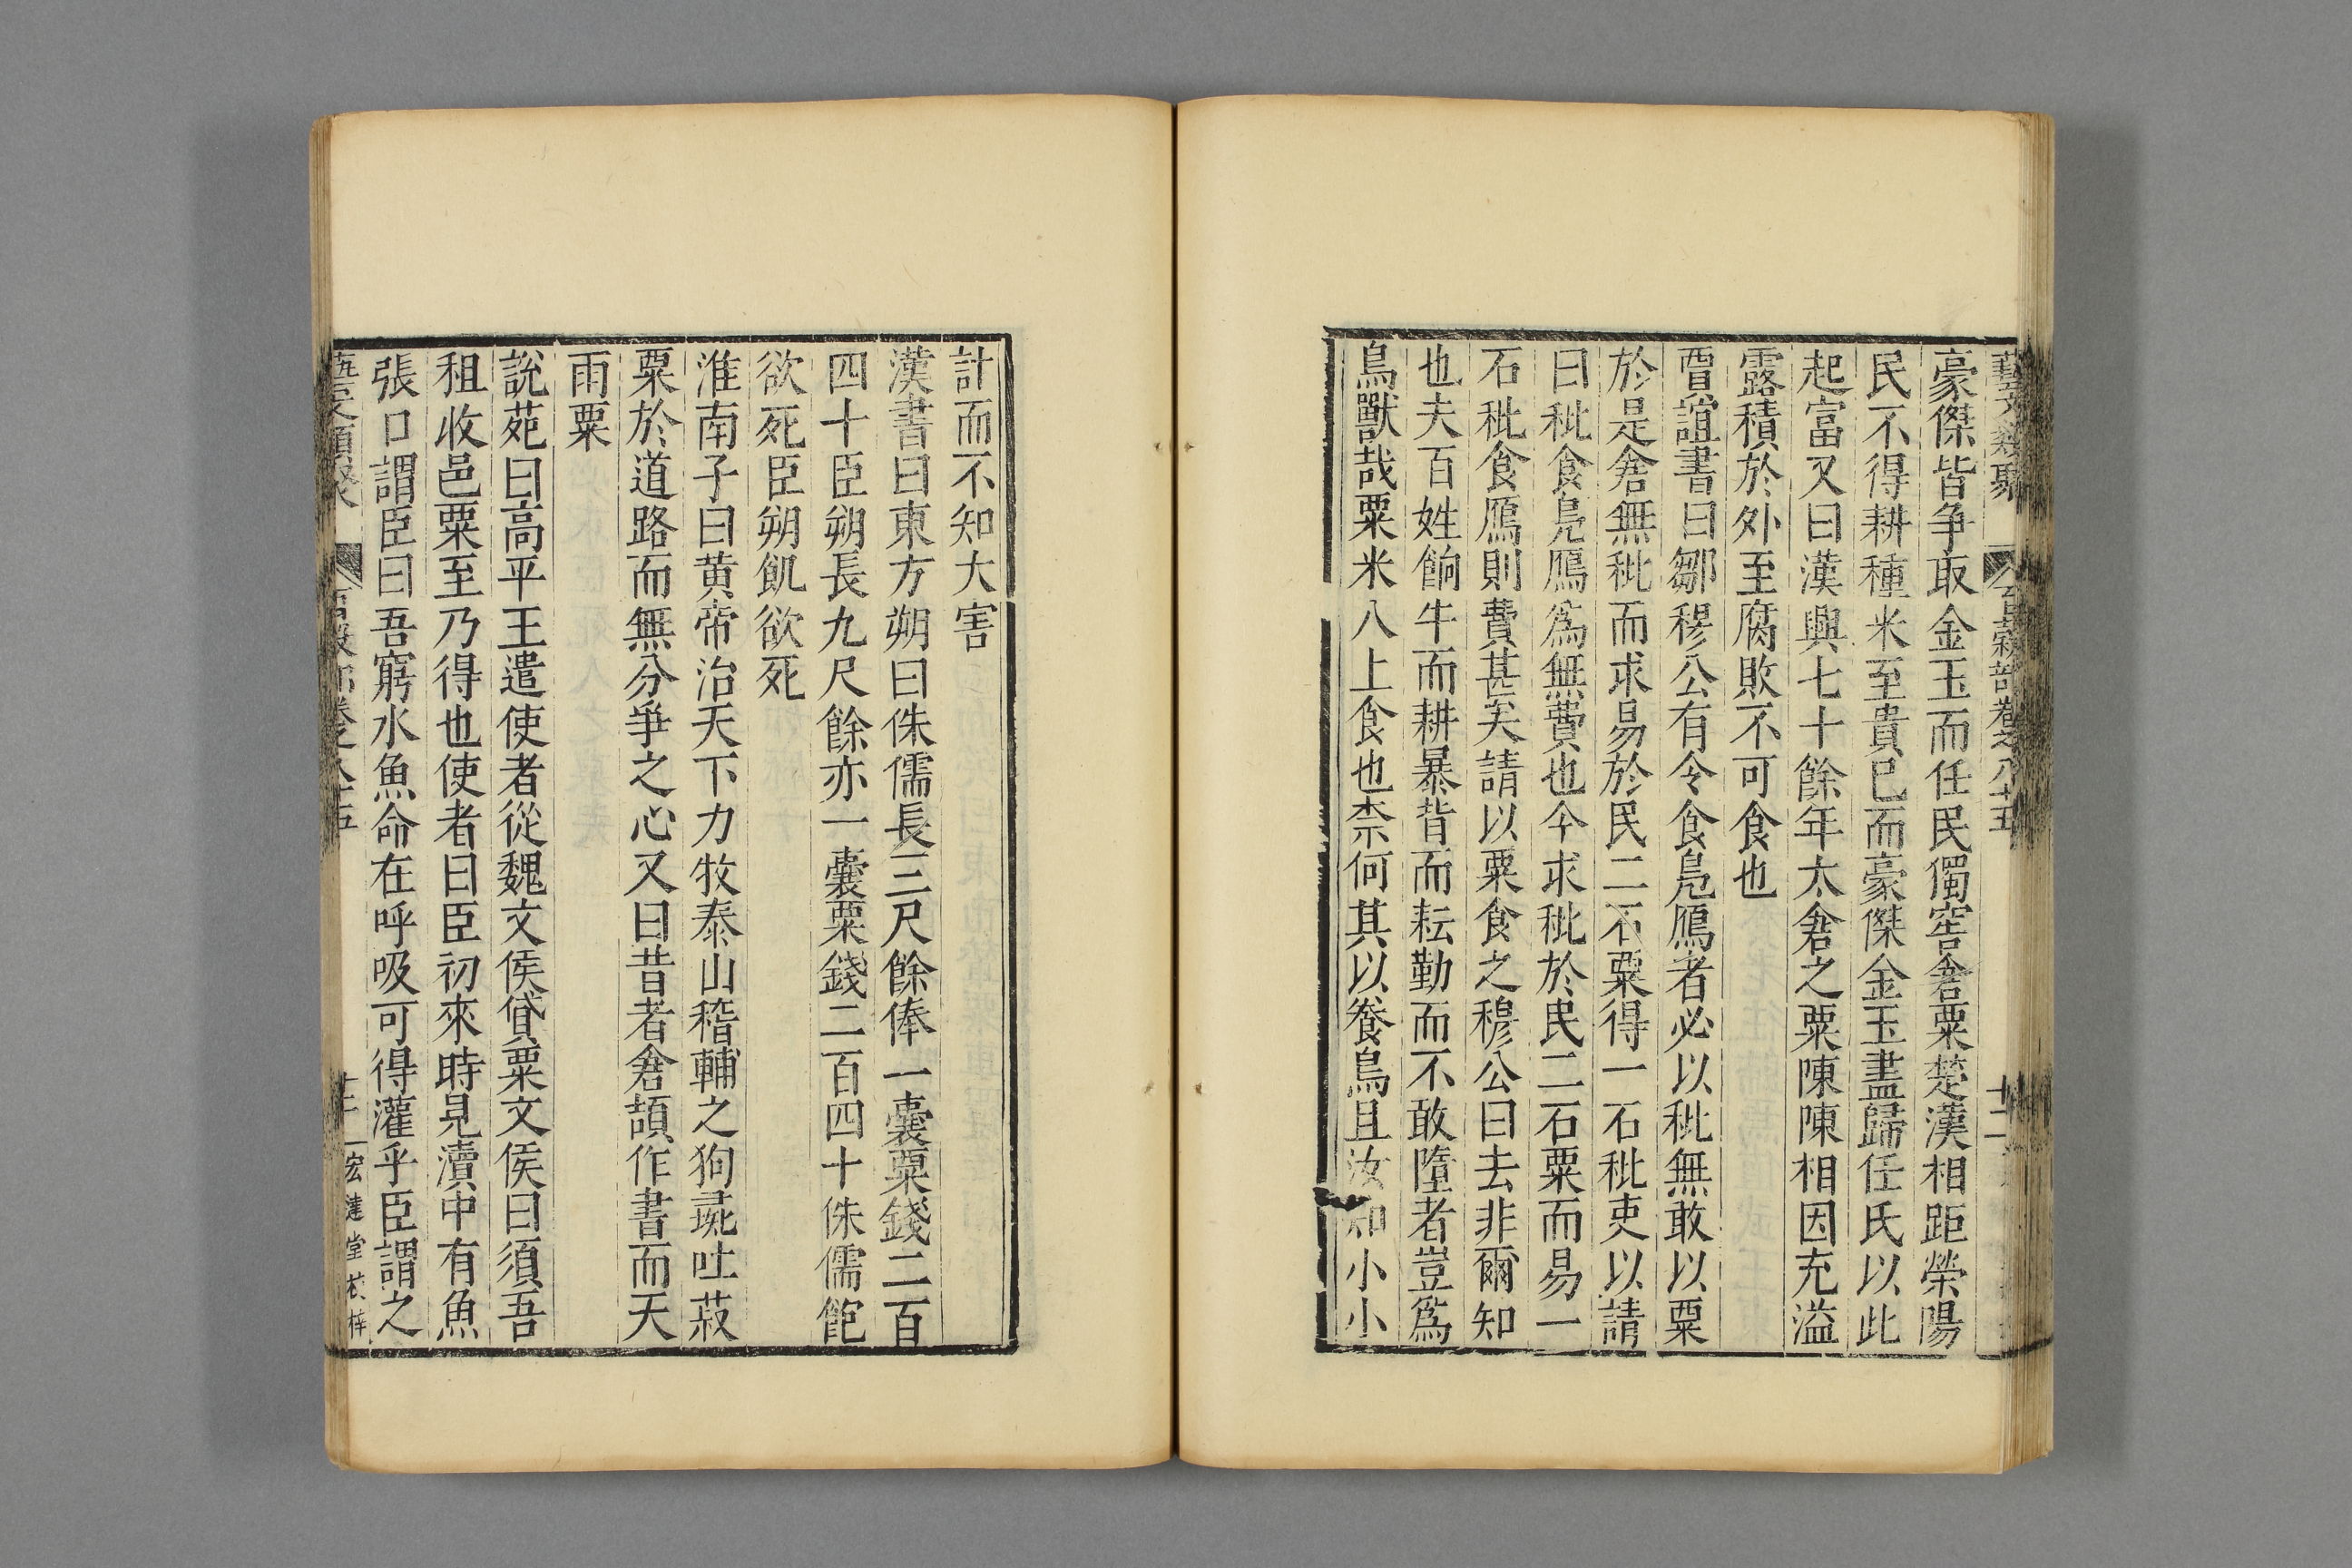 藝文類聚 百穀部卷之八十五 十二
豪傑皆爭取金玉而任民獨窖倉粟楚漢相距榮陽
民不得耕種米至貴已而豪傑金玉盡歸任氏以此
起富又曰漢興七十餘年太倉之粟陳陳相因充溢
露積於外至腐敗不可食也
賈誼書曰鄒穆公有令食鳧鴈者必以秕無敢以粟
於是倉無秕而求易於民二石粟得一石秕吏以請
曰秕食鳧鴈為無費也今求秕於民二石粟而易一
石秕食鴈則費甚矣請以粟食之穆公曰去非爾知
也夫百姓餉牛而耕暴背而耘勤而不敢墮者豈為
鳥獸哉粟米人上食也柰何其以養鳥且汝知小小
計而不知大害
漢書曰東方朔曰侏儒長三尺餘俸一囊粟錢二百
四十臣朔長九尺餘亦一囊粟錢二百四十侏儒飽
欲死臣朔飢欲死
淮南子曰黃帝治天下力牧泰山稽輔之狗彘吐菽
粟於道路而無分爭之心又曰昔者倉頡作書而天
雨粟
說苑曰高平王遣使者從魏文侯貸粟文侯曰須吾
租收邑粟至乃得也使者曰臣初來時見瀆中有魚
張口謂臣曰吾窮水魚命在呼吸可得灌乎臣謂之
藝文類聚 百穀部卷之八十五 十三 宏達堂校梓